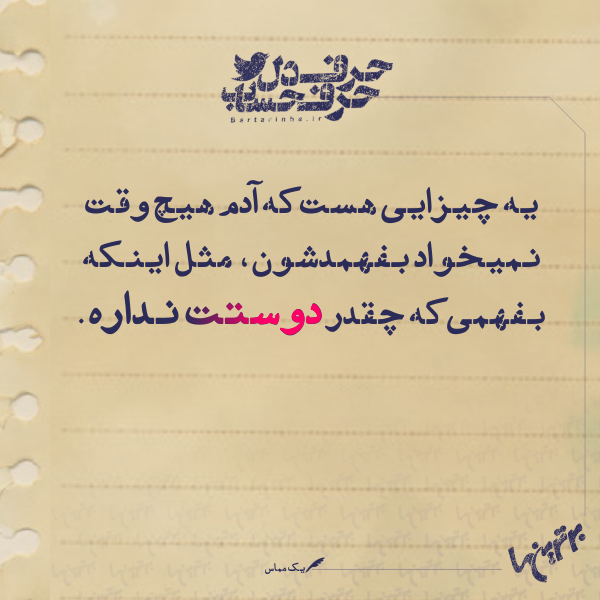 حرف دل
حرف حساب
Bartarinha.ir
یه چیزایی هست که آدم هیچ وقت
نمیخواد بفهمدشون، مثل اینکه
بفهمی که چقدر دوستت نداره.
یک مماس
برترین‌ها